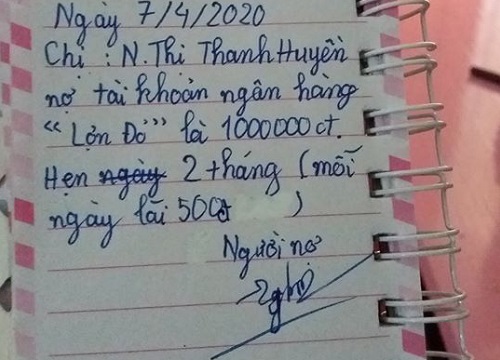 Ngày 7/4/2020
Chị : N.Thị Thanh Huyền
nợ tài khoản ngân hàng
“Lợn Đỏ” là 1000000 ct.
Hẹn ngày 2 tháng (mỗi
ngày lãi 500đ )
Người nợ